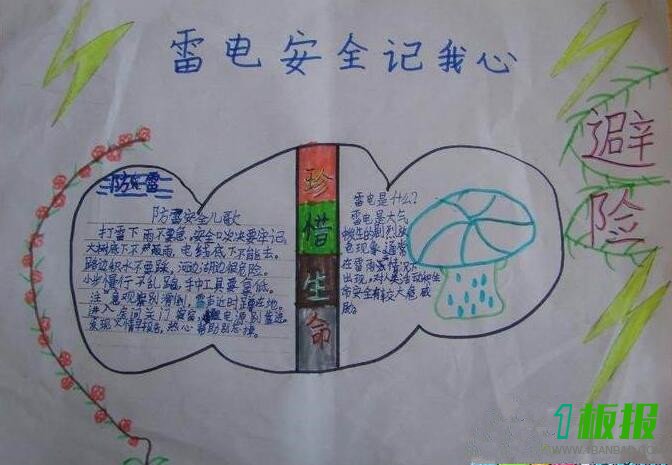 雷电安全记我心
避险
防雷
防雷安全儿歌
打雷下雨不要急,安全口诀要牢记。
大树底下不避雨,电线底下不能去。
路边积水不要踩,河边湖边很危险。
小步慢行不乱跑,手中工具要拿低。
注意观察别滑倒,雷声近时蹲在地。
进入房间关门窗,电源别
发现火情早报告,热心帮助别忘掉。
珍惜生命
雷电是什么?
雷电是大气
中发生的剧烈放
电现象通常
在雷雨情况下
出现,对人类活动和生
命安全有较大危
威胁。
1板报
WWW.1BANBAO.COM